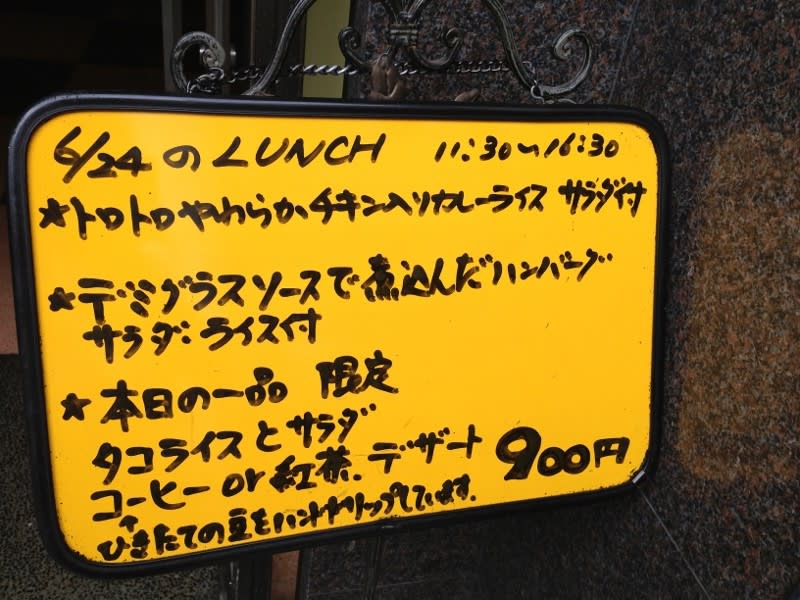 6/24のLUNCH 11:30〜16:30
★トロトロやわらかチキン入りカレーライス サラダ付
★デミグラスソースで煮込んだハンバーグ
サラダ:ライス付
★本日の一品 限定
タコライスとサラダ
コーヒーor紅茶.デザート 900円
↑ひきたての豆をハンドドリップしています.